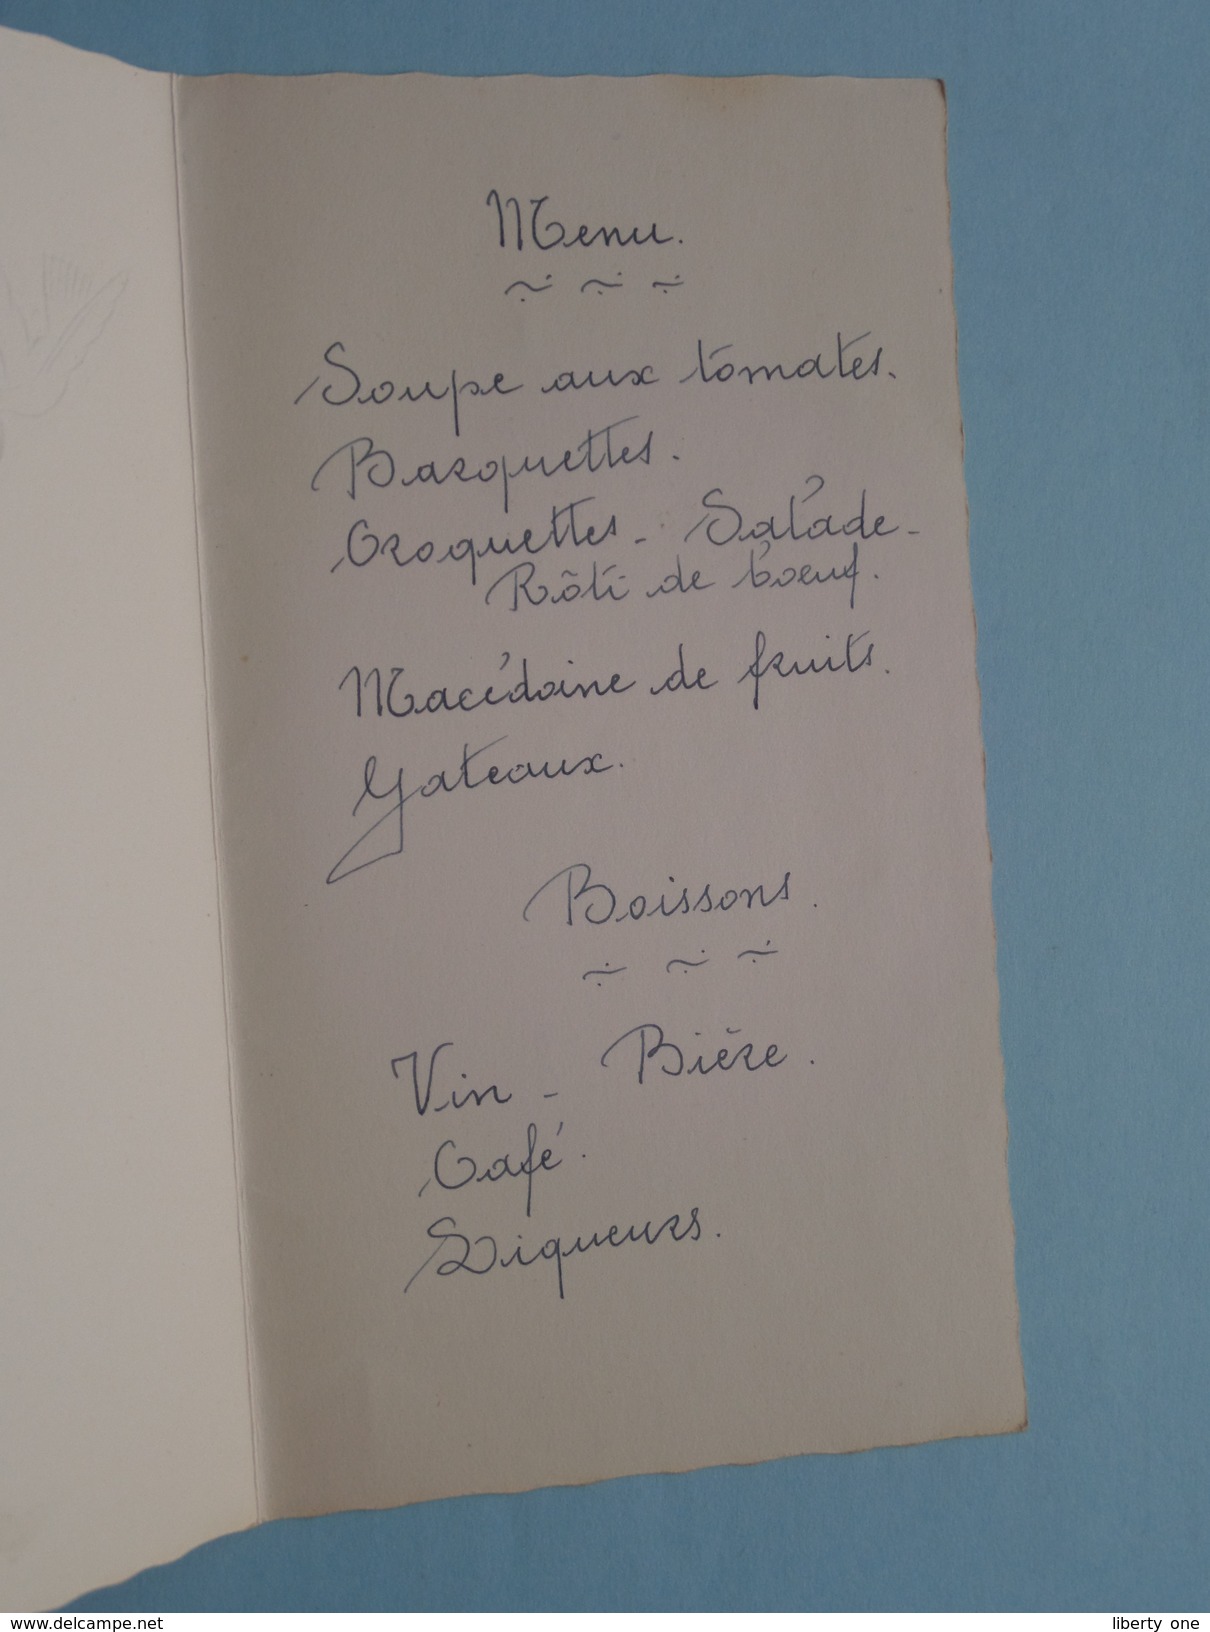 Menu.
Soupe aux tomates.
Barquettes.
Croquettes - Salade -
Rôti de boeuf.
Macédoine de fruits.
Gateaux.
Boissons.
Vin - Bière.
Café.
Liqueurs.
www.delcampe.net
liberty_one